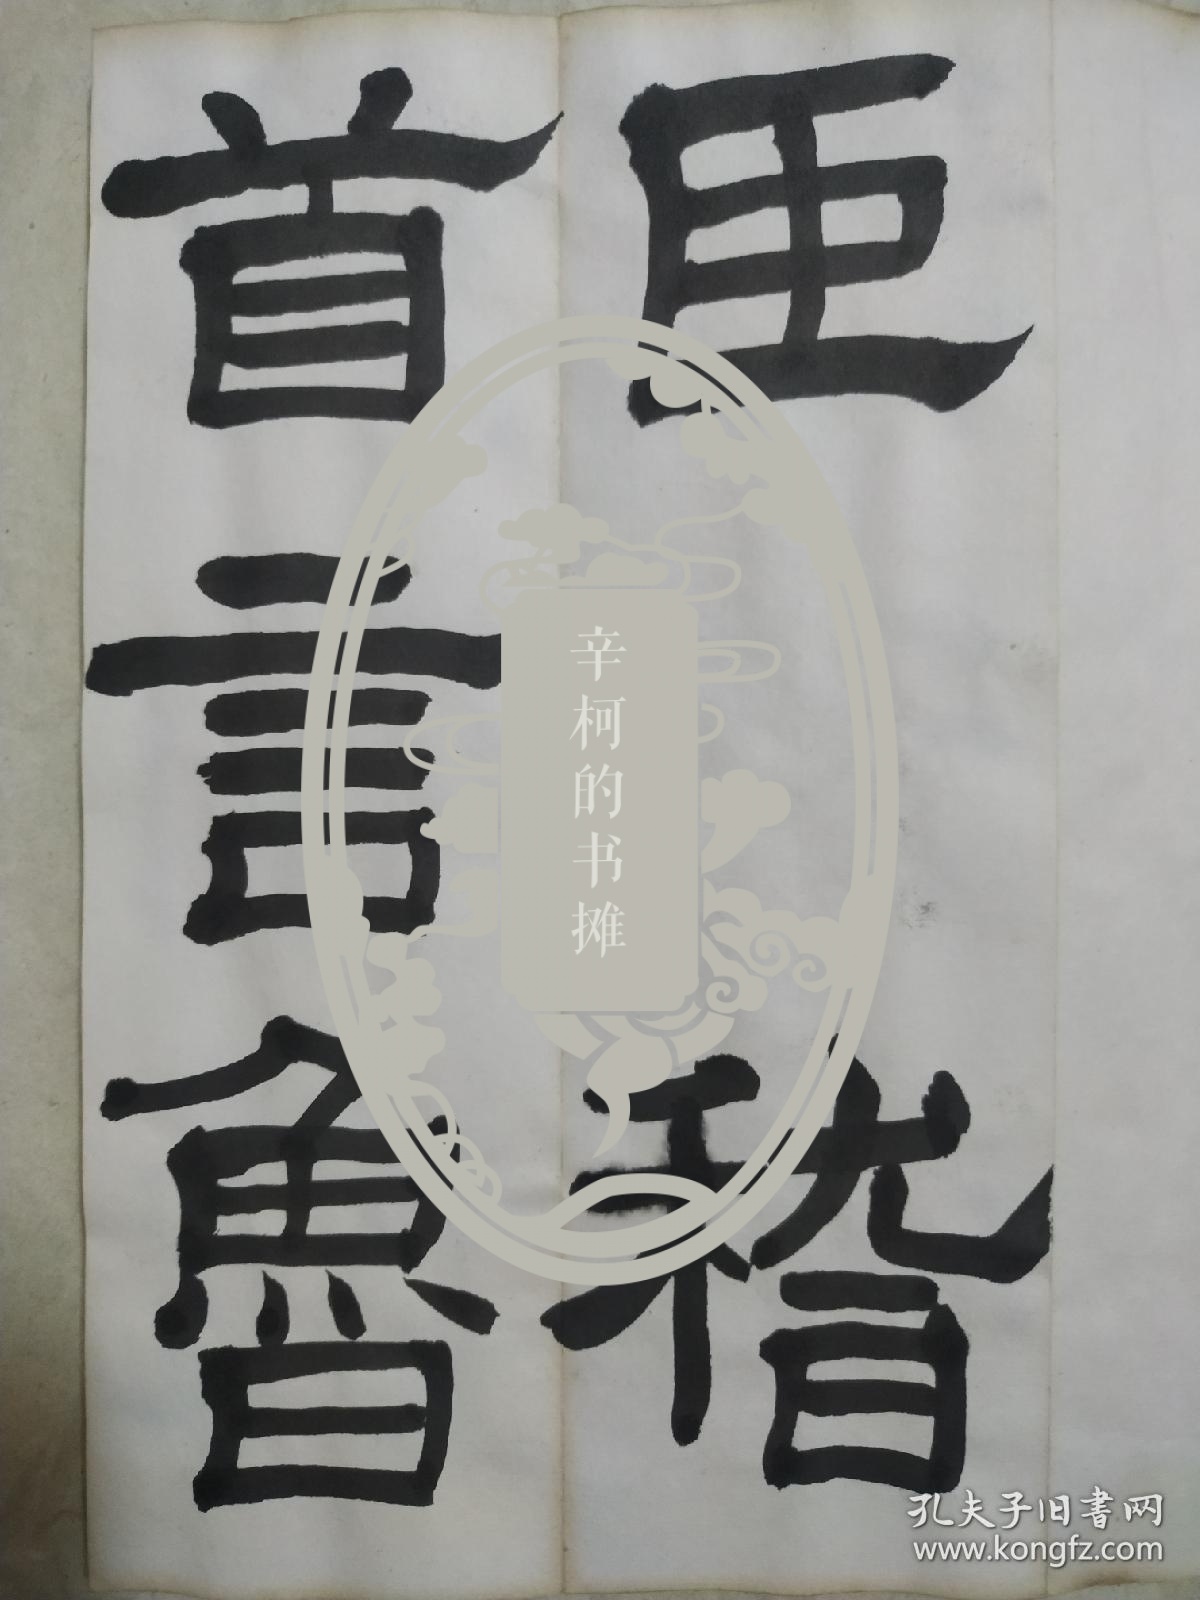 臣稽
首言魯
辛柯的书摊
孔夫子旧書网
www.kongfz.com